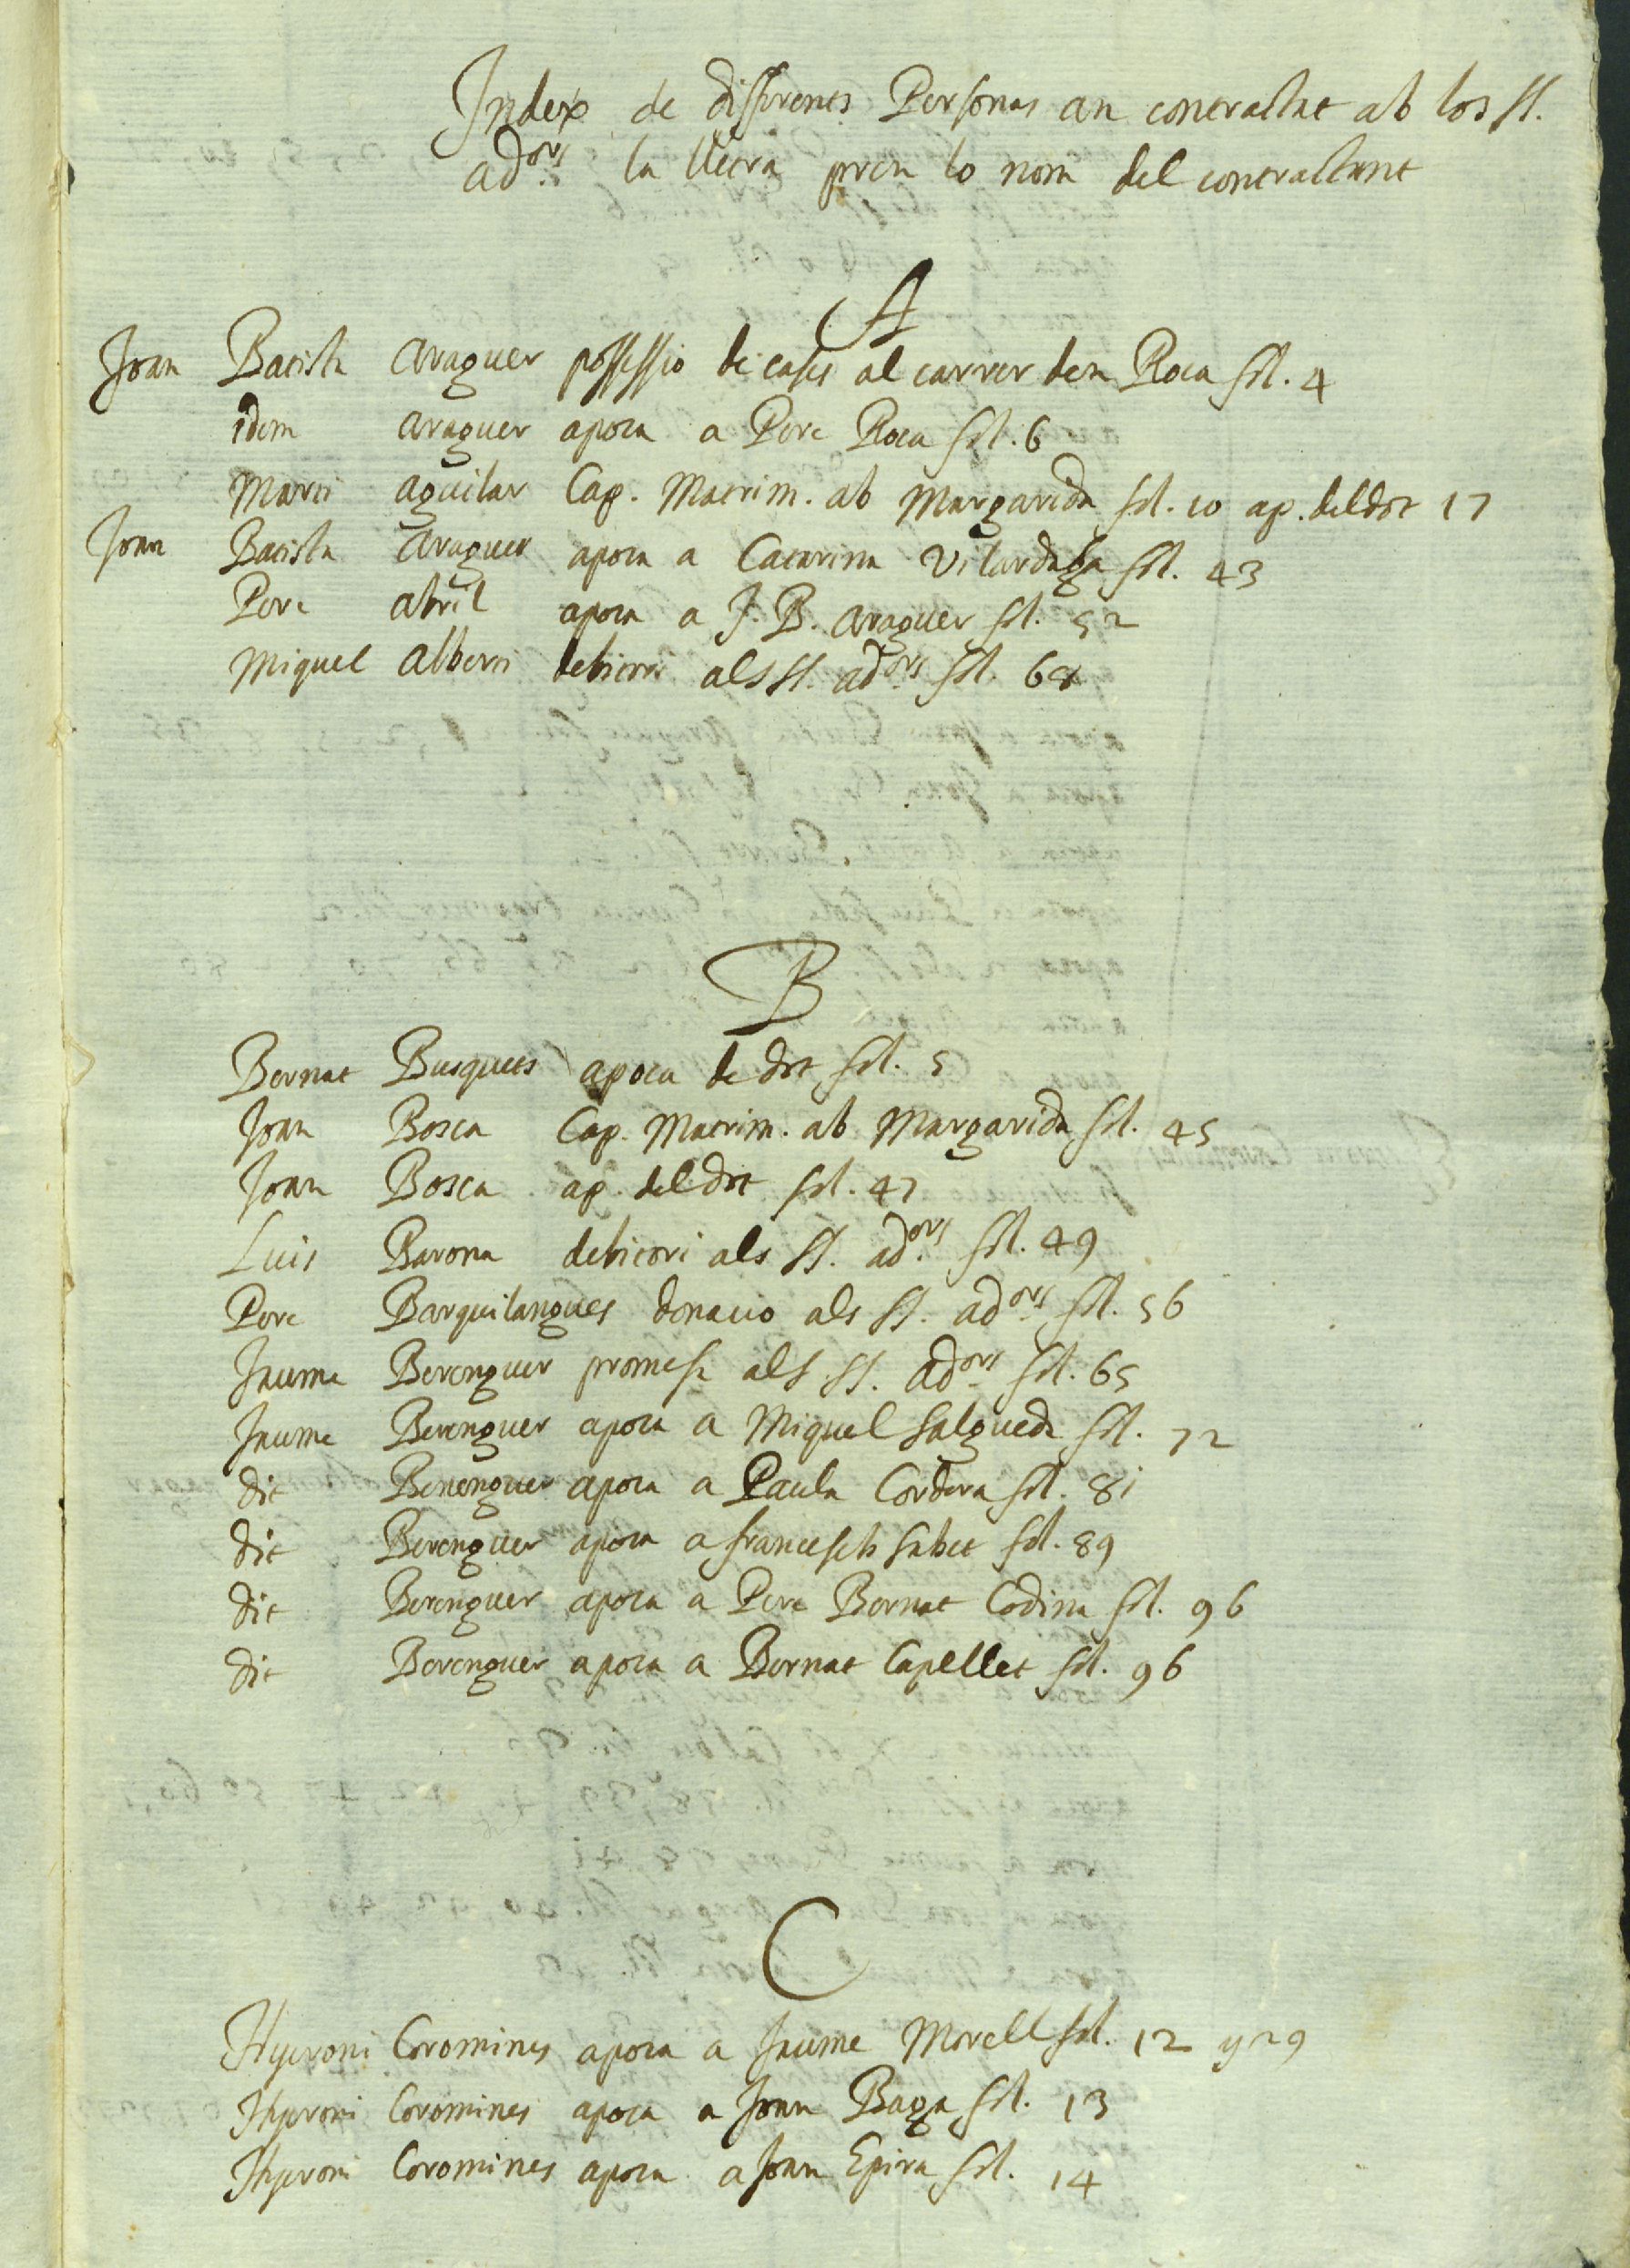 Index de differents Personas an contractat ab los ss.
ad.ors la lletra pren lo nom del contractant
A
Joan Batista Araguer possessio de cases al carrer den Roca fol. 4
idem Araguer apoca a Pere Roca fol. 6
Marti Aguilar Cap. Matrim. ab Margarida fol. 10 ap. del dot 17
Joan Batista Araguer apoca a Catarina Vilardaga fol. 43
Pere Abril apoca a J. B. Araguer fol. 52
Miquel Alberti debitori als ss. ad.ors fol. 68
B
Bernat Busquets apoca de dot fol. 5
Joan Bosca Cap. Matrim. ab Margarida fol. 45
Joan Bosca ap. del dot fol. 47
Luis Barona debitori als ss. ad.ors fol. 49
Pere Barquilangues donatio als ss. ad.ors fol. 56
Jaume Berenguer promesa als ss. ad.ors fol. 65
Jaume Berenguer apoca a Miquel Salgueda fol. 72
dit Berenguer apoca a Paula Cordera fol. 81
dit Berenguer apoca a Francesch Sabet fol. 89
dit Berenguer apoca a Pere Bernat Codina fol. 96
dit Berenguer apoca a Bernat Capellet fol. 96
C
Hyeroni Coromines apoca a Jaume Morell fol. 12 y 29
Hyeroni Coromines apoca a Joan Baga fol. 13
Hyeroni Coromines apoca a Joan Epira fol. 14